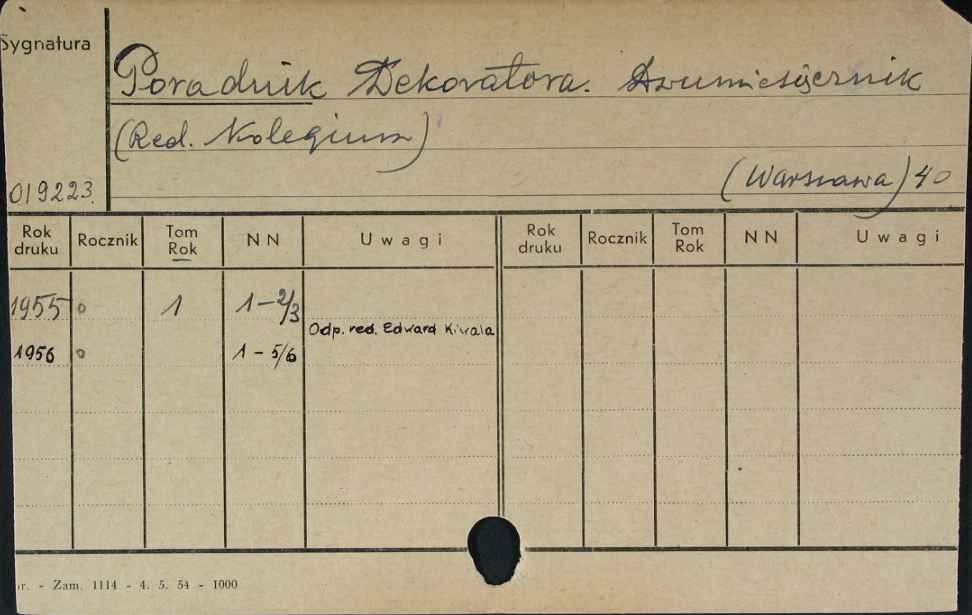 Sygnatura
Poradnik Dekoratora. Dwumiesięcznik
(Red. Kolegium)
(Warszawa) 40
019223.
Rok druku Rocznik Tom Rok NN Uwagi Rok druku Rocznik Tom Rok NN Uwagi
1955 o 1 1-2/3
Odp. red. Edward Kiwala
1956 o 1-5/6
r. - Zam. 1114 - 4. 5. 54 - 1000